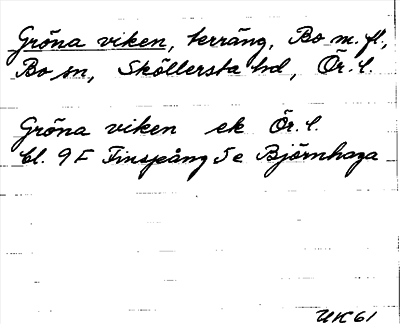 Gröna viken, terräng, Bo m. fl.,
Bo sn, Sköllersta hd, Ör. l.
Gröna viken ek Ör. l.
bl. 9F Finspång 5e Björnhaga
UK61